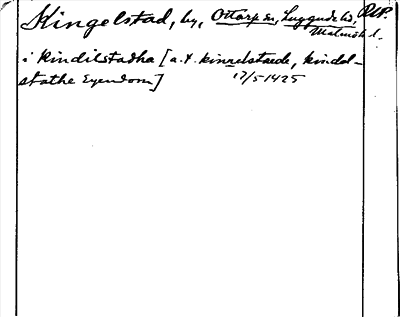 Kingelstad, by, Ottarp sn, Luggude hd, RAP.
Malmöh. l.
i Kindilstadha [a.t. kinnelstaede, kindel-
stathe Eyendom] 17/5 1425